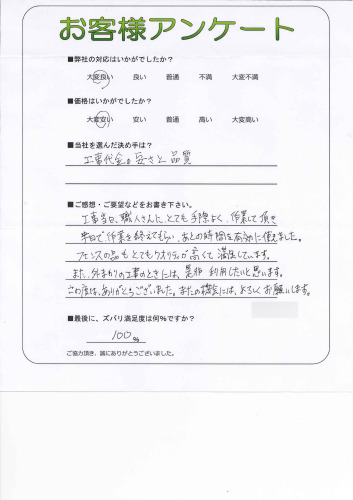 お客様アンケート
■弊社の対応はいかがでしたか？
大変良い 良い 普通 不満 大変不満
■価格はいかがでしたか？
大変安い 安い 普通 高い 大変高い
■当社を選んだ決め手は？
工事代金の安さと品質
■ご感想・ご要望などをお書き下さい。
工事当日、職人さんにとても手際よく、作業して頂き
半日で作業を終えてもらい、あとの時間を有効に使えました。
フェンスの品もとてもクオリティが高くて満足しています。
また、外まわりの工事のときには、是非利用したいと思います。
この度は、ありがとうございました。またの機会には、よろしくお願いします。
■最後に、ズバリ満足度は何％ですか？
100％
ご協力頂き、誠にありがとうございました。